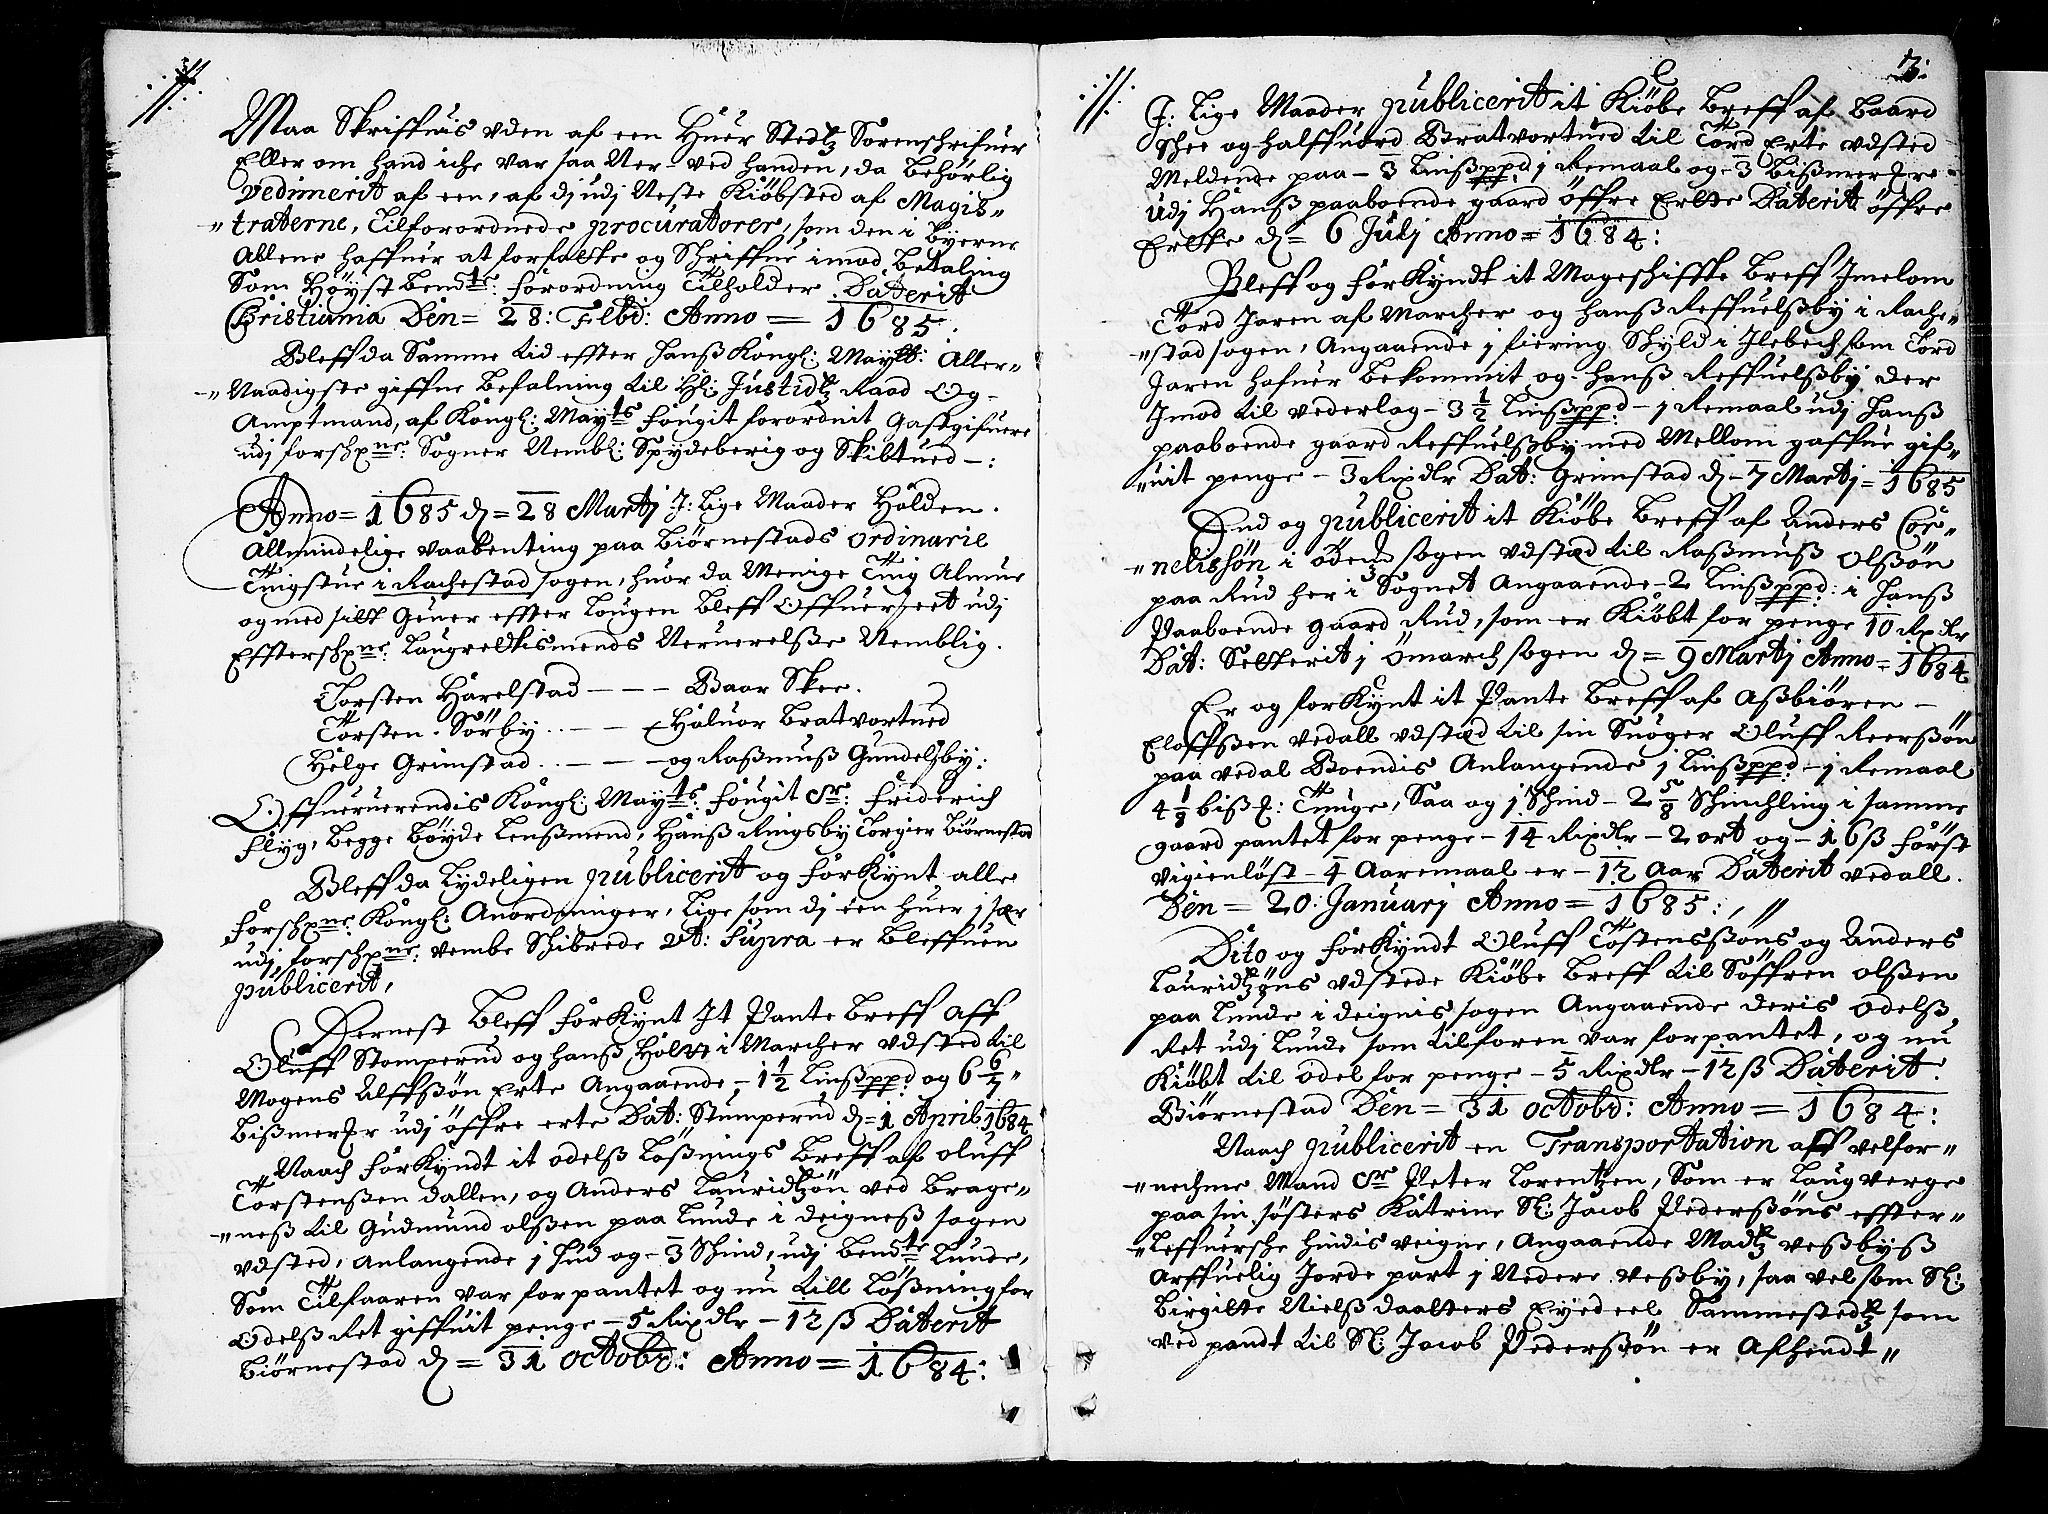 Maa Skriffuis uden af een Huer Stedtz Sorenschrifuer
Eller om hand iche var saa Ner ved handen, da Behørlig
Vedimerit af een, af dj udj Neste Kiöbsted af Magis-
traterne, Tilforordnede procuratorer, som den i Byerne
Allene haffuer at forfatte og Schriffue imod Betaling
Som Höyst Bendte forordning Tilholder Daterit
Cristiania Den = 28: Febr: Anno = 1685.
Bleff da Samme tid effter hans Kongl: Maytt: Aller-
Naadigste giffne Befalning til Hl: Justidtz Raad Og
Amptmand, af Kongl: Mayts Fougit forordnit Gastgifuere
udj forschne: Sogner Nembl: Spydeberig og Skibtued -:
Anno = 1685 d = 28 Martj J: Lige Maader Holden
Allmindelige Vaabenting paa Biörnestads ordinarie
Tingstue i Rachestad sogen, huor da Menige Ting Almue
og med silt Geuer effter Lougen bleff Offuerseet udj
Effterschne: Laugrettismends Neruerelsse Nemblig.
Torsten Harelstad - - - Baar Skee.
Torsten Sörby - - - Haluor Bratvortued
Helge Grimstad - - - og Rassmuss Gundelsby:
Offueruerendis Kongl: Mayts: Fougit Sr: Friderich
Flyg, begge Böyde Lenssmend, Hanss Ringsby Torgier Biörnestad
Bleff da Tydeligen publicerit og forkynt alle
forschne: Kongl: Anordninger, lige som dj een huer j sær
udj forschne: vembe Schibrede ut: supra er Bleffuen
publicerit,
Dernest Bleff forkynt It Pante Breff aff
Oluff Stomperud og hanss Holtt i Marcher udsted til
Mogens Alffssön Erte Angaaende - 1 1/2 Linssppd og 6 6/7
Bissmer r udj öffre erte Dat: Stumperud d = 1 April 1684
Naach forkyndt it odelss Lössnings Breff af oluff
Torstenssen dallen, og Anders Lauridtzön ved Brage-
ness til Gudmund olssen paa Lunde i deigness sogen
udsted, Anlangende j Hud og - 3 Schind, udj Bendte Lunde,
Som Tilfaaren var forpantet og nu till Lössning for
Odelss Ret giffuit penge - 5 Rixdlr - 12 ß Daterit
Biörnestad d = 31 octobr: Anno = 1684:
3:
J: Lige Maader publicerit it Kiöbe Breff af Baard
Schee og halffuord Bratvortued til Tord Erte udsted
Meldende paa - 3 Linssppd j Remaal og - 3 Bissmer
udj Hanss paaboende gaard öffre Ertte Daterit öffre
Ertte d = 6 Julj Anno = 1684:
Bleff og forkyndt it Mageschiffte Breff Jmelom
Tord Jaren af Marcher og hanss Reffuelssby i Rache-
stad sogen, Angaaende j fiering Schyld i Ilebech som Tord
Jaren hafuer bekommit og hanss Reffuelssby der
Jmod til vederlag - 3 1/2 Linssppd - j Remaal udj hanss
paaboende gaard Reffuelssby med Mellom gaffue gif-
uit penge - 3 Rixdlr Dat: Grimstad d - 7 Martj = 1685
End og publicerit it Kiöbe Breff af Anders Cor-
nelissön i öden sogen udsted til Rassmuss Olssön
paa Rud her i Sognet Angaaende - 2 Linssppd: i Hanss
Paaboende gaard Rud, som er Kiöbt for penge 10 Rxdlr
Dat: Selterit j ömarch sogen d = 9 Martj Anno = 1684
Er og forkynt it Pante Breff af Assbiören -
Eloffssen Vedall udsted til sin Suoger Oluff Reerssön
paa vedal Boendis Anlangende j Linssppd - j Remaal
4 1/8 biss : Tunge, Saa og j Schind - 2 5/8 Schinchling i samme
gaard pantet for penge - 14 Rixdlr - 2 ort og - 16 ß Först
vigienlöst - 4 Aaremaal er - 12 Aar Daterit vedall.
Den = 20: Januarj Anno = 1685:,
Dito og forkyndt Oluff Tostenssöns og Anders
Lauridtzöns udstede Kiöbe Breff til Söffren olssen
paa Lunde i deignis sogen Angaaende deris odelss
Ret udj Lunde som tilforen var forpantet, og nu
Kiöbt til odel for penge - 5 Rixdlr - 12 ß Daterit
Biörnestad Den = 31 octobr: Anno = 1684:
Naach publicerit en Transportation aff velfor-
nehme Mand Sr Peter Lorentzen, Som er Laugverge
paa sin sösters Katrine Sl: Jacob Pederssöns effter-
Leffuersche hindis veigne, Angaaende Madtz vessbyss
Arffuelig Jorde part j Nedere vessby, saa vel som Sl:
Birgitte Nielss daatters Eyedeel Sammestedtz som
ved pandt til Sl: Jacob Pederssön er Afhendt